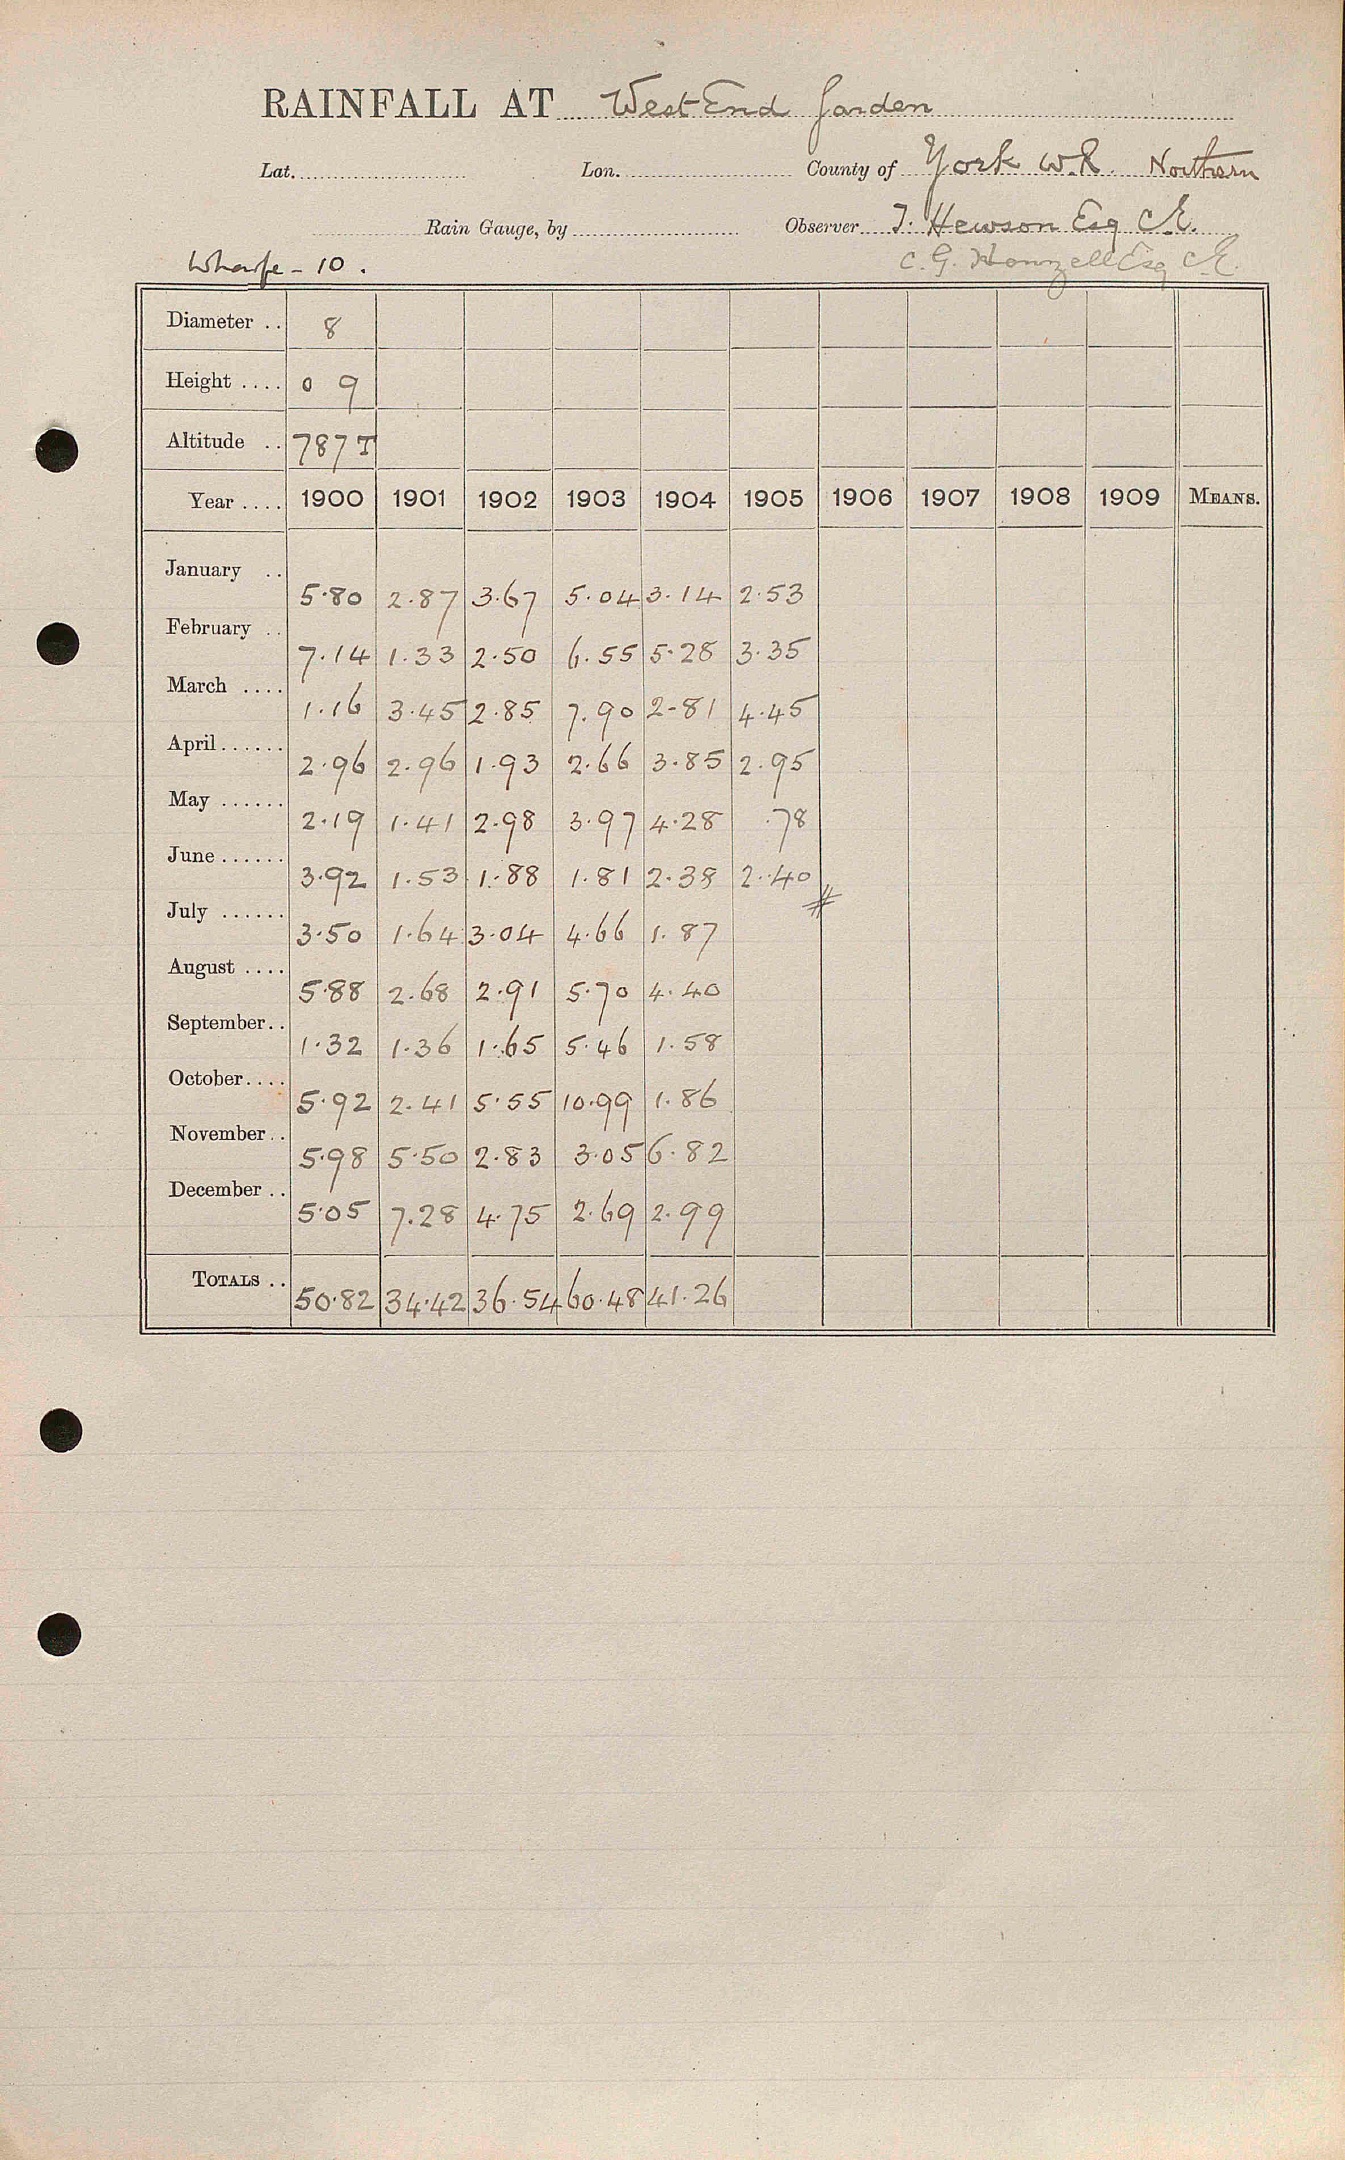 RAINFALL AT West End Garden
Lat. Lon. County of York W.R. Northern
Rain Gauge, by Observer T. Hewson Esq C.E.
Wharfe - 10. C. G. Howzell Esq C.E.
Diameter .. 8
Height .... 0 9
Altitude .. 787 T
Year .... 1900 1901 1902 1903 1904 1905 1906 1907 1908 1909 MEANS.
January .. 5.80 2.87 3.67 5.04 3.14 2.53
February .. 7.14 1.33 2.50 6.55 5.28 3.35
March .... 1.16 3.45 2.85 7.90 2.81 4.45
April ...... 2.96 2.96 1.93 2.66 3.85 2.95
May ...... 2.19 1.41 2.98 3.97 4.28 .78
June ...... 3.92 1.53 1.88 1.81 2.38 2.40 #
July ...... 3.50 1.64 3.04 4.66 1.87
August .... 5.88 2.68 2.91 5.70 4.40
September.. 1.32 1.36 1.65 5.46 1.58
October.... 5.92 2.41 5.55 10.99 1.86
November.. 5.98 5.50 2.83 3.05 6.82
December .. 5.05 7.28 4.75 2.69 2.99
TOTALS .. 50.82 34.42 36.54 60.48 41.26